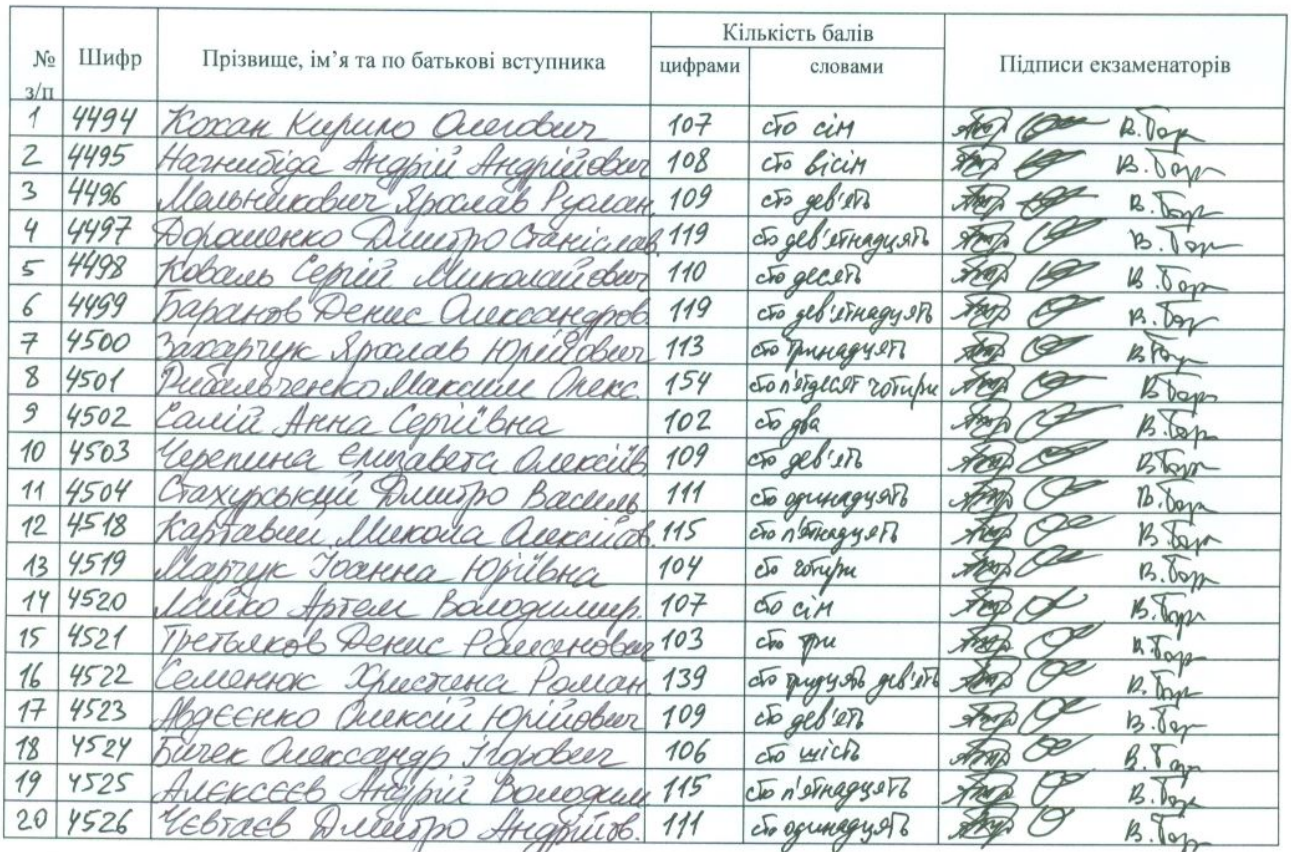 № з/п Шифр Прізвище, ім’я та по батькові вступника Кількість балів цифрами словами Підписи екзаменаторів
1 4494 Кохан Кирило Олегович 107 сто сім
2 4495 Нагнибіда Андрій Андрійович 108 сто вісім
3 4496 Мельникович Ярослав Руслан. 109 сто дев'ять
4 4497 Дорошенко Дмитро Станіслав. 119 сто дев'ятнадцять
5 4498 Коваль Сергій Миколайович 110 сто десять
6 4499 Баранов Денис Олександров. 119 сто дев'ятнадцять
7 4500 Захарчук Ярослав Юрійович 113 сто тринадцять
8 4501 Рибальченко Максим Олекс. 154 сто п'ятдесят чотири
9 4502 Салій Анна Сергіївна 102 сто два
10 4503 Черепина Єлизавета Олексіїв. 109 сто дев'ять
11 4504 Стахурський Дмитро Василь. 111 сто одинадцять
12 4518 Картавий Микола Олексійов. 115 сто п'ятнадцять
13 4519 Марчук Іоанна Юріївна 104 сто чотири
14 4520 Майко Артем Володимир. 107 сто сім
15 4521 Третьяков Денис Романович 103 сто три
16 4522 Семенюк Христина Роман. 139 сто тридцять дев'ять
17 4523 Авдєєнко Олексій Юрійович 109 сто дев'ять
18 4524 Бичек Олександр Ігорович 106 сто шість
19 4525 Алєксєєв Андрій Володим 115 сто п'ятнадцять
20 4526 Чевтаєв Дмитро Андрійов. 111 сто одинадцять